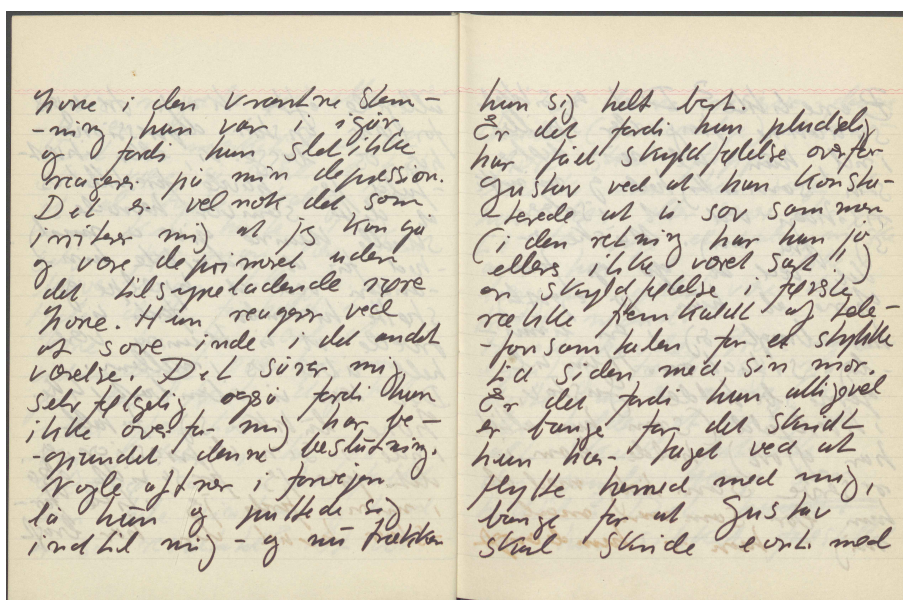 hove i den vrantne stem-
-ning hun var i igår
og fordi hun slet ikke
reagerer på min depression.
Det er vel nok det som
irriterer mig at jeg kan gå
og være deprimeret uden
det tilsyneladende rører
hove. Hun reagerer ved
at sove inde i det andet
værelse. Det sårer mig
selvfølgelig også fordi hun
ikke overfor mig har be-
-grundet denne beslutning.
Nogle aftner i forvejen
lå hun og puttede sig
indtil mig - og nu trækker
hun sig helt bort.
Er det fordi hun pludselig
har fået skyldfølelse overfor
Gustav ved at hun konsta-
-terede at vi sov sammen
(i den retning har hun jo
ellers ikke været sart!)
en skyldfølelse i første
række fremkaldt af tele-
-fonsamtalen for et stykke
tid siden med sin mor.
Er det fordi hun alligevel
er bange for det skridt
hun har taget ved at
flytte herned med mig,
bange for at Gustav
skal skride evt. med